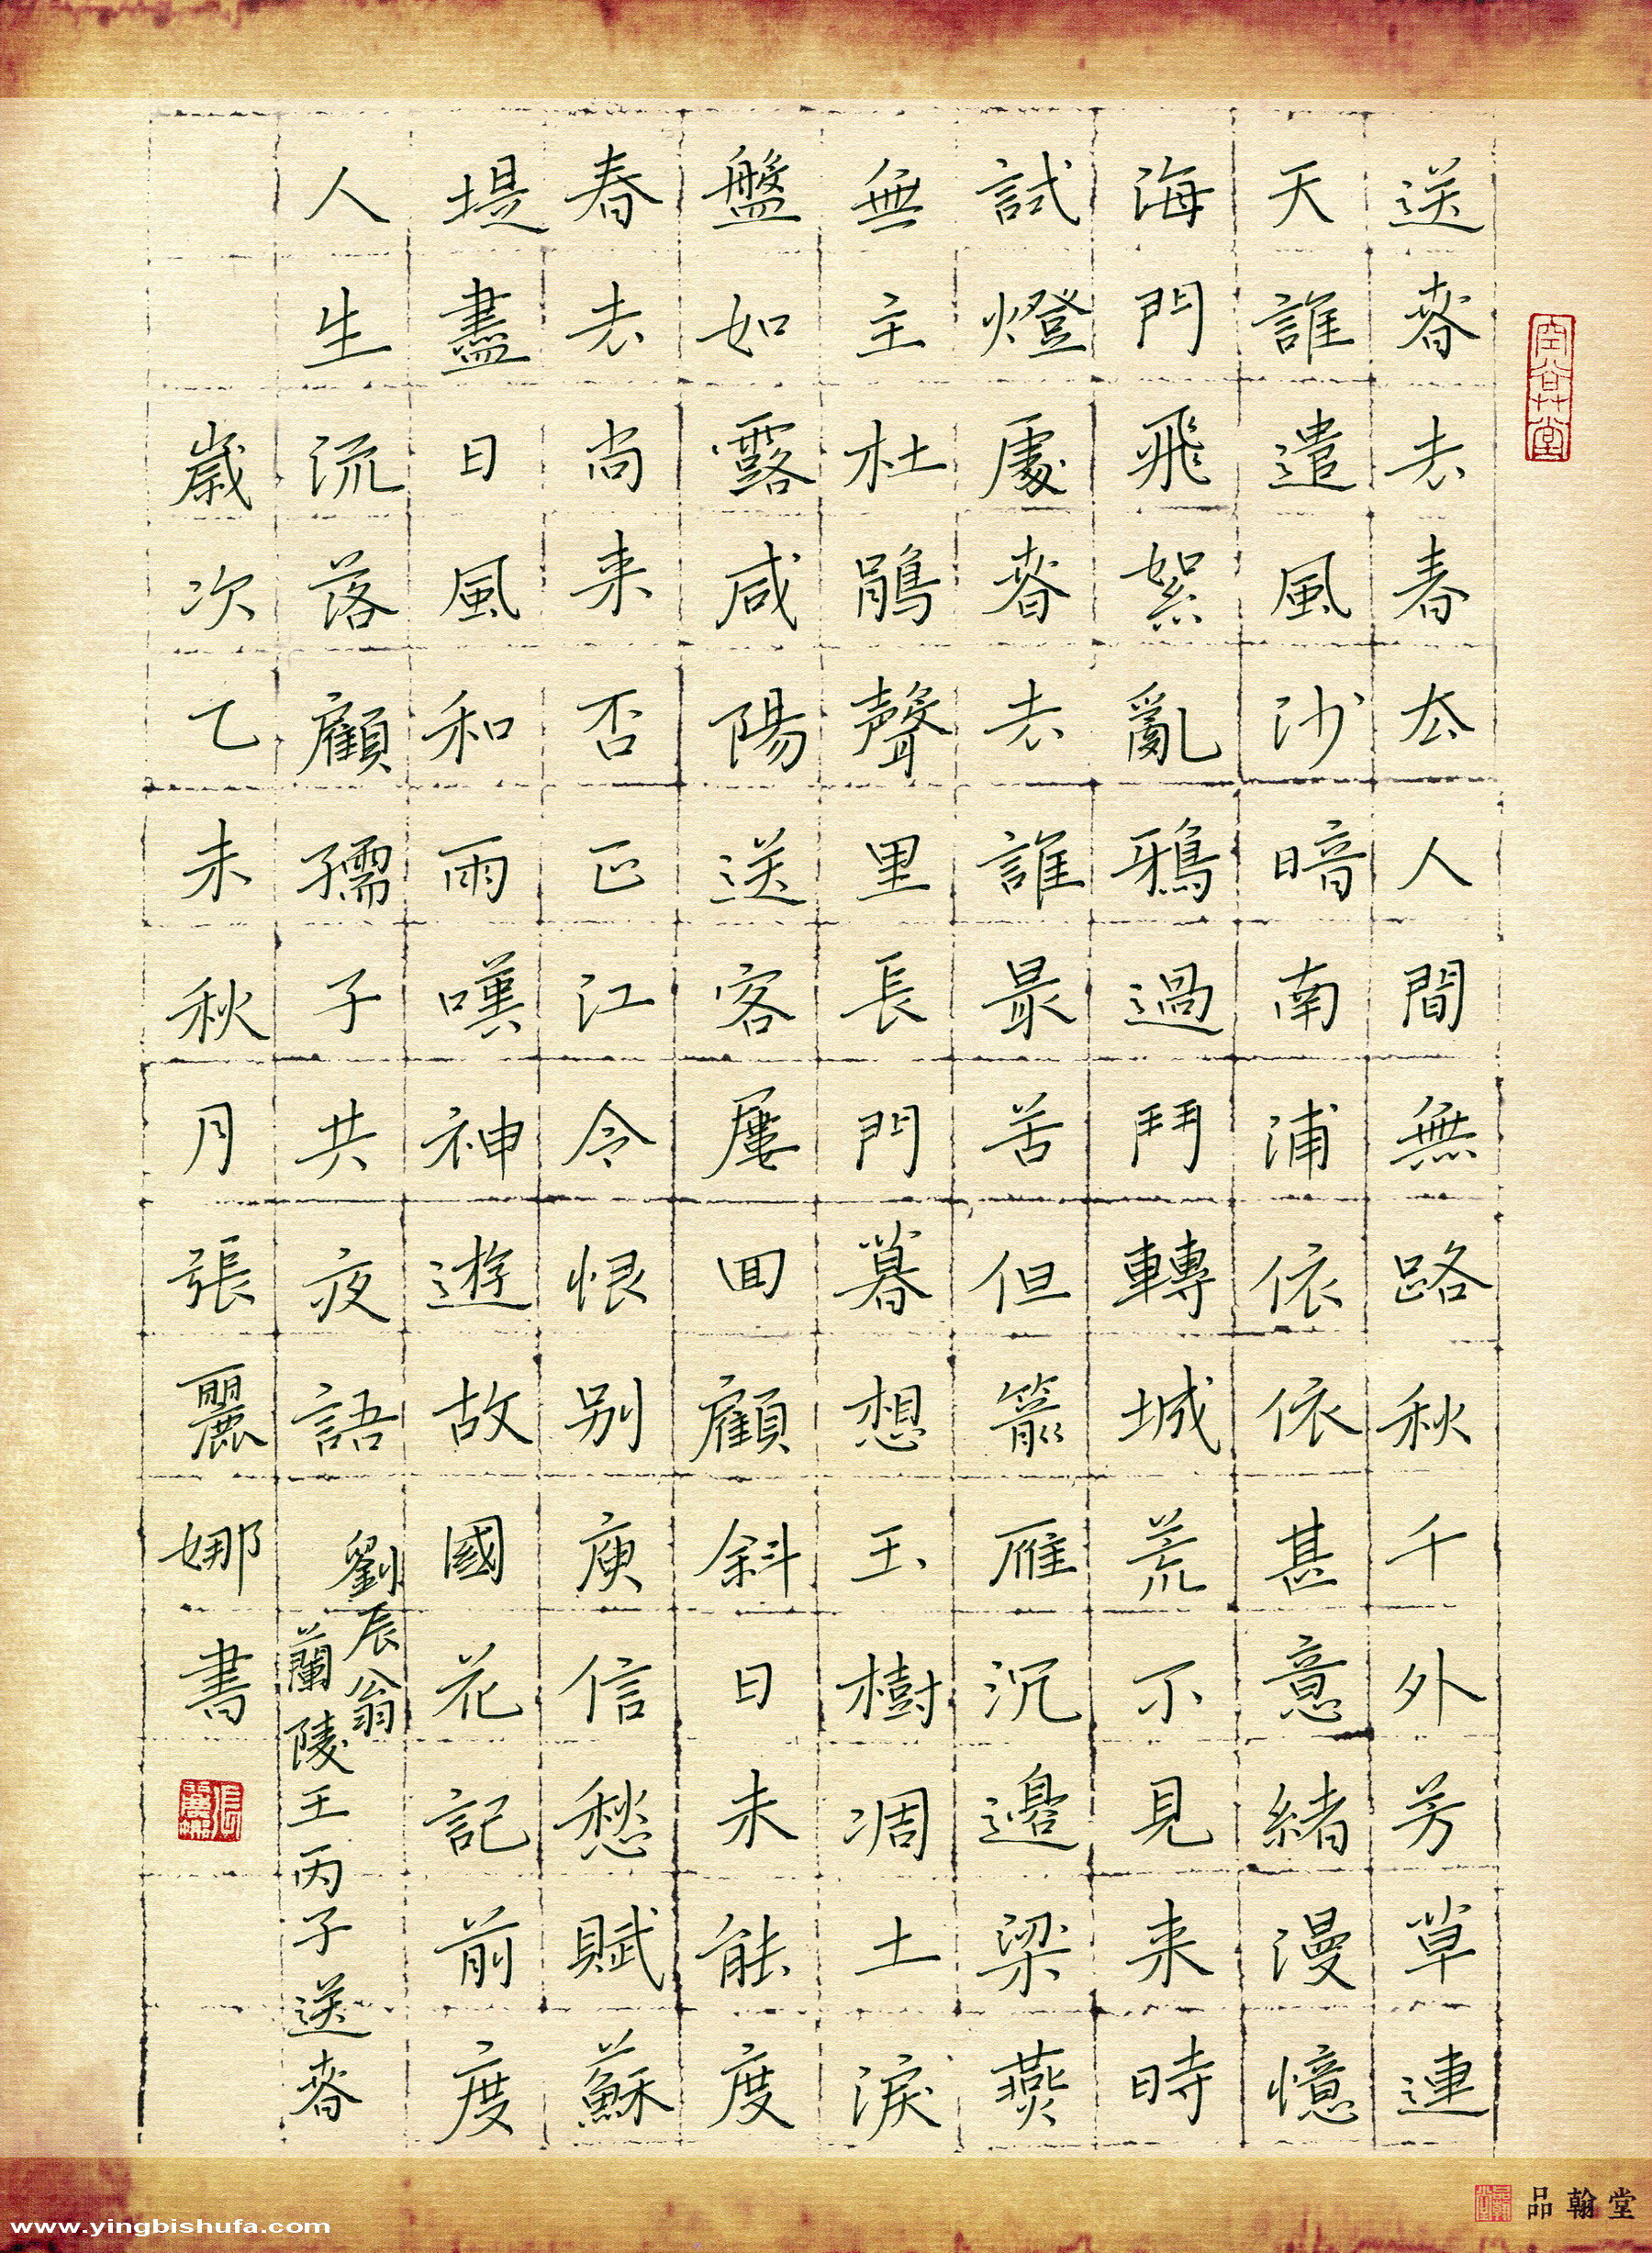 送春去春去人間無路秋千外芳草連
天誰遣風沙暗南浦依依甚意緒漫憶
海門飛絮亂鴉過鬥轉城荒不見来時
試燈處春去誰最苦但箭雁沉邊梁燕
無主杜鵑聲里長門暮想玉樹凋土淚
盤如露咸陽送客屢回顧斜日未能度
春去尚来否正江令恨别庾信愁賦蘇
堤盡日風和雨嘆神遊故國花記前度
人生流落顧孺子共夜語
劉辰翁
蘭陵王丙子送春
歲次乙未秋月張麗娜書
品翰堂
www.yingbishufa.com